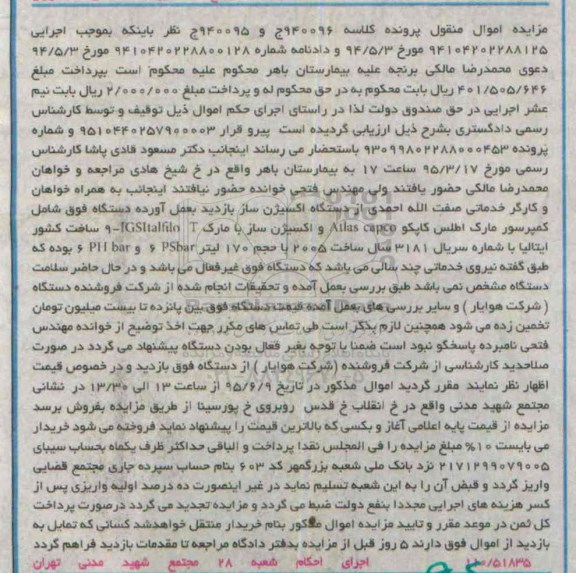 مزایده اموال منقول پرونده کلاسه ۹۴۰۰۹۶ج و ۹۴۰۰۹۵ج نظر باینکه بموجب اجرایی
۹۴۱۰۴۲۰۲۲۸۸۱۲۵ مورخ ۹۴/۵/۳ و دادنامه شماره ۹۴۱۰۴۲۰۲۲۸۸۰۰۱۲۸ مورخ ۹۴/۵/۳
دعوی محمدرضا مالکی برنجه علیه بیمارستان باهر محکوم علیه محکوم است بپرداخت مبلغ
۴۰۱/۵۰۵/۶۴۶ ریال بابت محکوم به در حق محکوم له و پرداخت مبلغ ۲/۰۰۰/۰۰۰ ریال بابت نیم
عشر اجرایی در حق صندوق دولت لذا در راستای اجرای حکم اموال ذیل توقیف و توسط کارشناس
رسمی دادگستری بشرح ذیل ارزیابی گردیده است پیرو قرار ۹۵۱۰۴۴۰۲۵۷۹۰۰۰۰۳ و شماره
پرونده ۹۳۰۹۹۸۰۲۲۸۸۰۰۰۴۵۳ باستحضار می رساند اینجانب دکتر مسعود قادی پاشا کارشناس
رسمی مورخ ۹۵/۳/۱۷ ساعت ۱۷ به بیمارستان باهر واقع در خ شیخ هادی مراجعه و خواهان
محمدرضا مالکی حضور یافتند ولی مهندس فتحی خوانده حضور نیافتند اینجانب به همراه خواهان
و کارگر خدماتی صفت الله احمدی از دستگاه اکسیژن ساز بازدید بعمل آورده دستگاه فوق شامل
کمپرسور مارک اطلس کاپکو Atlas capco و اکسیژن ساز با مارک IGSItalfilo T-۹ ساخت کشور
ایتالیا با شماره سریال ۳۱۸۱ سال ساخت ۲۰۰۵ با حجم ۱۷۰ لیتر ۶ PSbar و ۶ PH bar بوده که
طبق گفته نیروی خدماتی چند سالی می باشد که دستگاه فوق غیرفعال می باشد و در حال حاضر سلامت
دستگاه مشخص نمی باشد طبق بررسی بعمل آمده و تحقیقات انجام شده از شرکت فروشنده دستگاه
( شرکت هوایار ) و سایر بررسی های بعمل آمده قیمت دستگاه فوق بین پانزده تا بیست میلیون تومان
تخمین زده می شود همچنین لازم بذکر است طی تماس های مکرر جهت اخذ توضیح از خوانده مهندس
فتحی نامبرده پاسخگو نبود است ضمنا با توجه بغیر فعال بودن دستگاه پیشنهاد می گردد در صورت
صلاحدید کارشناسی از شرکت فروشنده (شرکت هوایار ) از دستگاه فوق بازدید و در خصوص قیمت
اظهار نظر نمایند مقرر گردید اموال مذکور در تاریخ ۹۵/۶/۹ از ساعت ۱۳ الی ۱۳/۳۰ در نشانی
مجتمع شهید مدنی واقع در خ انقلاب خ قدس روبروی خ پورسینا از طریق مزایده بفروش برسد
مزایده از قیمت پایه اعلامی آغاز و بکسی که بالاترین قیمت را پیشنهاد نماید فروخته می شود خریدار
می بایست ۱۰% مبلغ مزایده را فی المجلس نقدا پرداخت و الباقی حداکثر ظرف یکماه بحساب سیبای
۲۱۷۱۲۹۹۰۷۹۰۰۵ نزد بانک ملی شعبه بزرگمهر کد ۶۰۳ بنام حساب سپرده جاری مجتمع قضایی
واریز گردد و قبض آن را به این شعبه تسلیم نماید در غیر اینصورت ده درصد اولیه واریزی پس از
کسر هزینه های اجرایی مجددا بنفع دولت ضبط می گردد و مزایده تجدید می گردد درصورت پرداخت
کل ثمن در موعد مقرر و تایید مزایده اموال مذکور بنام خریدار منتقل خواهدشد کسانی که تمایل به
بازدید از اموال فوق دارند ۵ روز قبل از مزایده بدفتر دادگاه مراجعه تا مقدمات بازدید فراهم گردد
۱۱۰/۵۱۸۳۵ اجرای احکام شعبه ۲۸ مجتمع شهید مدنی تهران